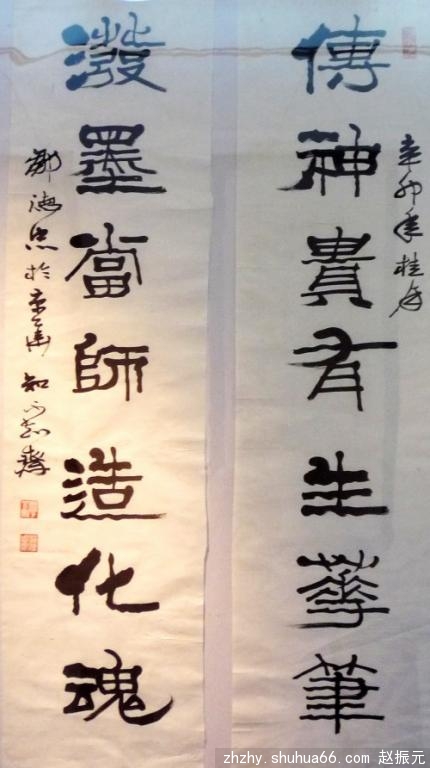 辛卯年桂月
傳神貴有生華筆
潑墨當師造化魂
鄭海忠於京華知不知齋
zhzhy.shuhua66.com 赵振元